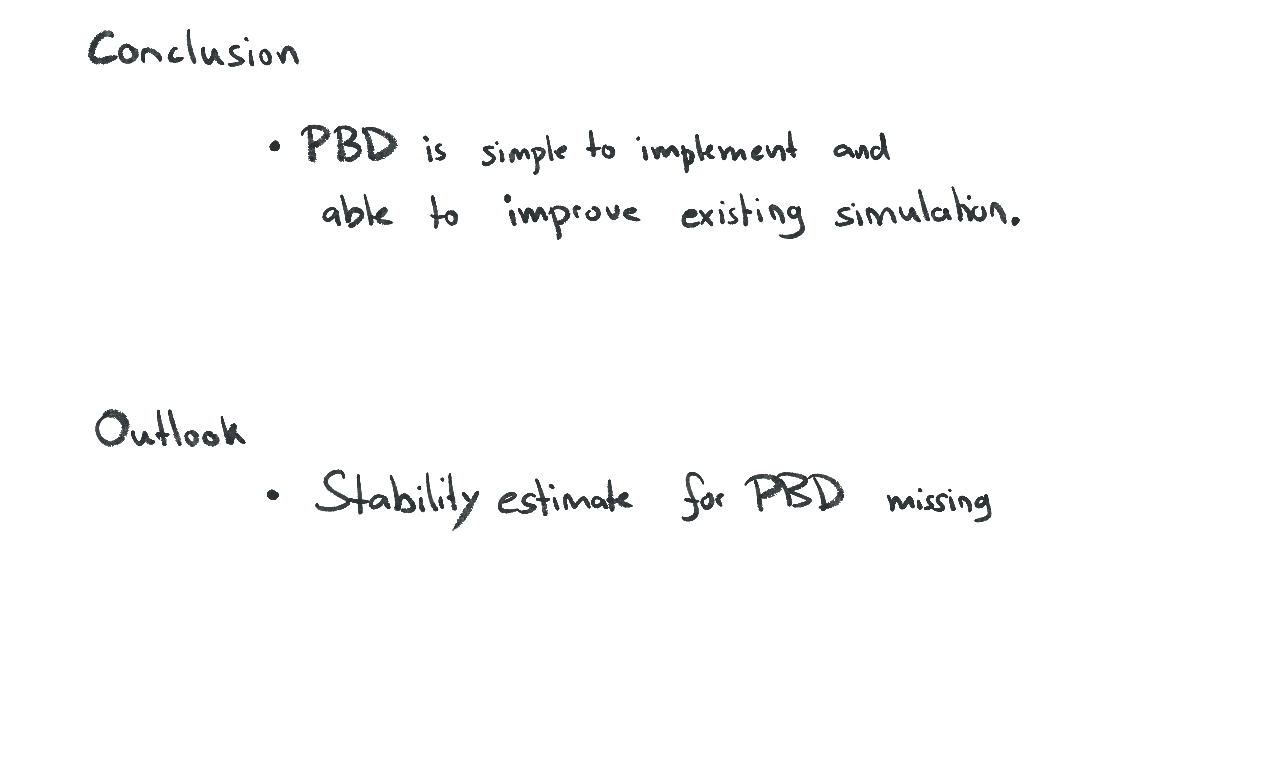 Conclusion
• PBD is simple to implement and
able to improve existing simulation.
Outlook
• Stability estimate for PBD missing